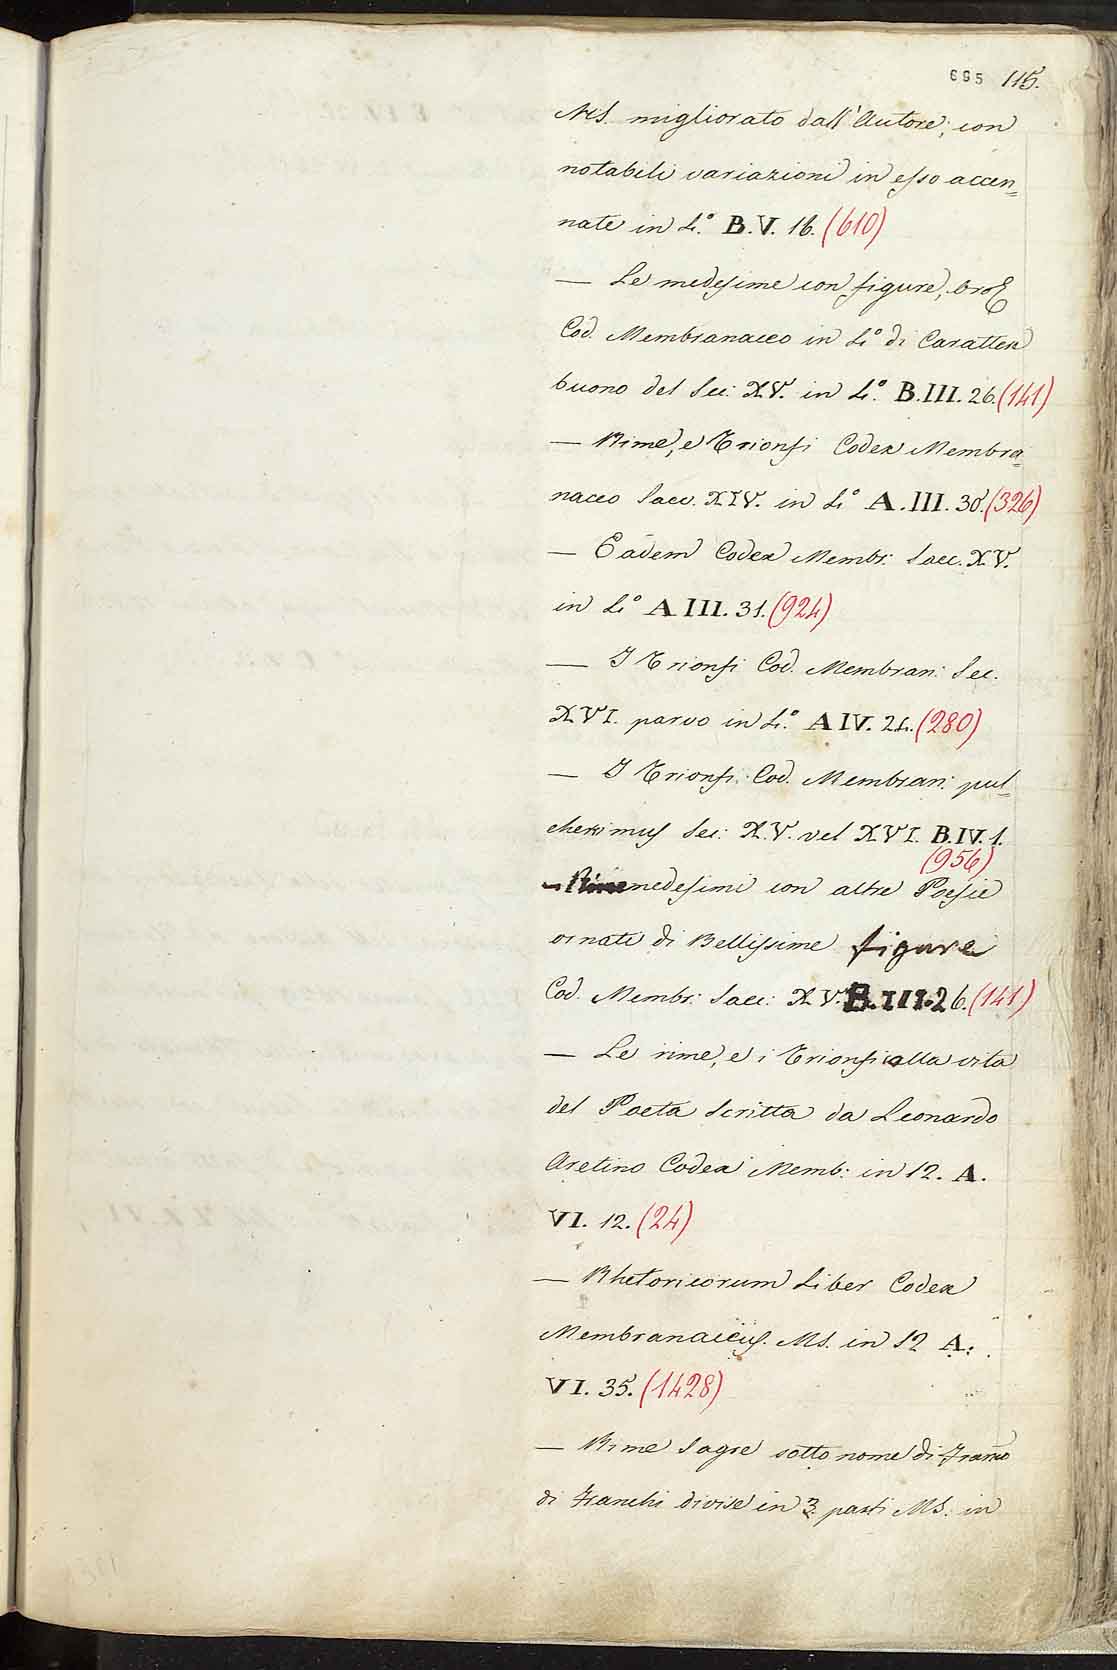 695 115.
MS. migliorato dall'Autore, con
notabili variazioni in esso accen=
nate in 4.° B.V. 16. (610)
— Le medesime con figure,
Cod. Membranaceo in 4.° di Caratter
buono del Sec: XV. in 4.° B.III. 26. (141)
— Rime, e Trionfi Codex Membra=
naceo Saec. XIV. in 4.° A.III. 30. (326)
— Eadem Codex Membr: Saec. XV.
in 4.° A III. 31. (924)
— I Trionfi Cod. Membran: Sec.
XVI. parvo in 4.° A IV. 24. (280)
— I Trionfi. Cod. Membran: pul=
cherimus Sec: XV. vel XVI. B.IV. 1.
(956)
— medesimi con altre Poesie
ornati di Bellissime figure
Cod. Membr: Saec: XV. B.III.26. (141)
— Le rime, e i Trionfi colla vita
del Poeta scritta da Leonardo
Aretino Codex Memb: in 12. A.
VI. 12. (24)
— Rhetoricorum Liber Codex
Membranaceus. MS. in 12 A:
VI. 35. (1428)
— Rime Sagre sotto nome di Franco
di Franchi divise in 3. parti MS. in